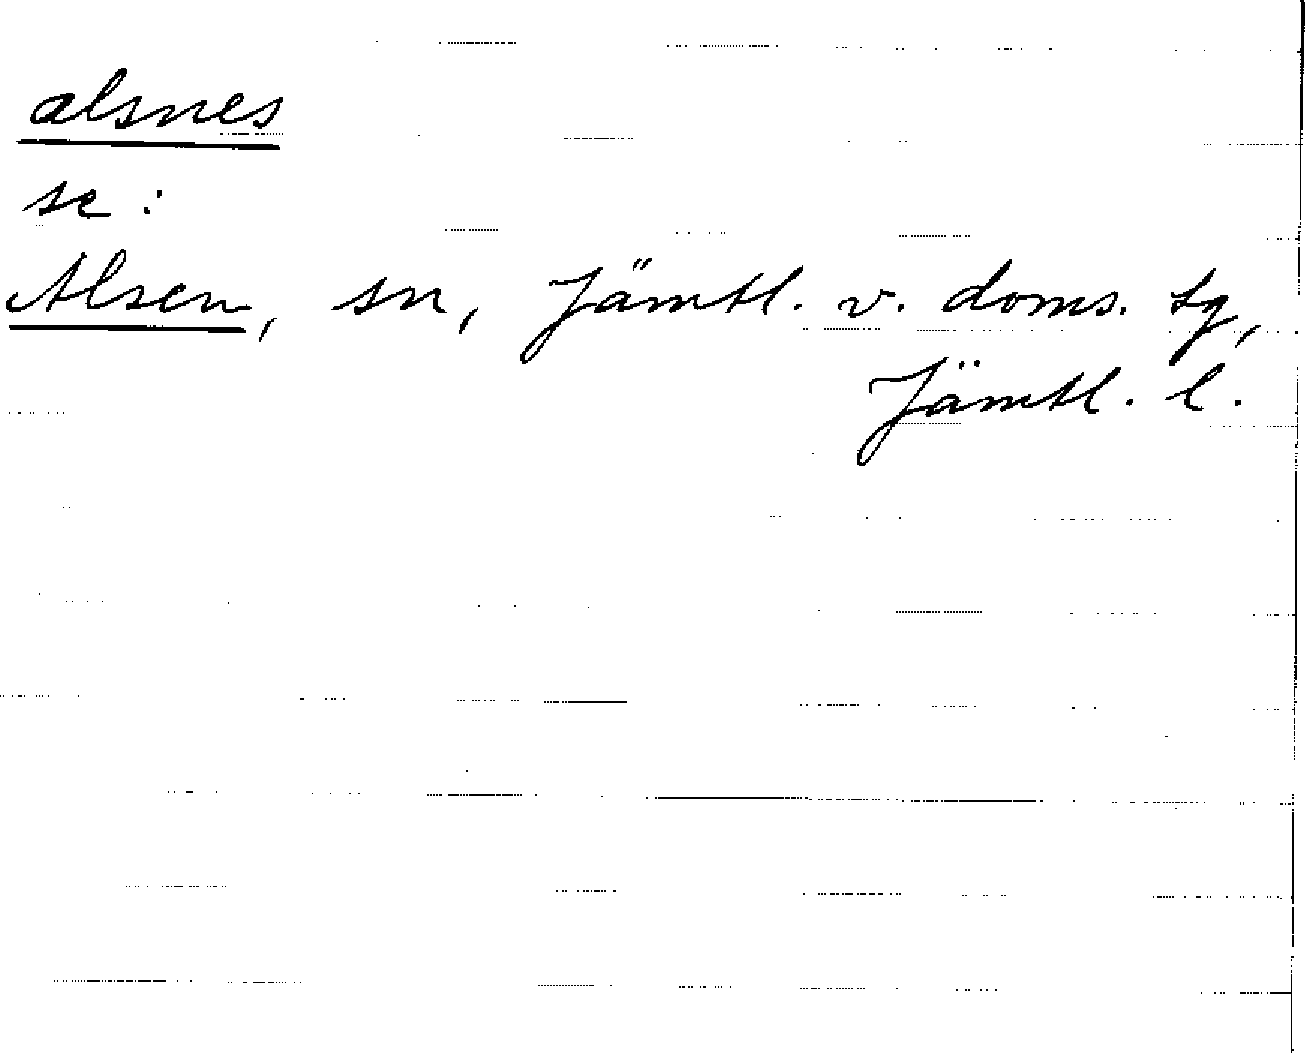 alsnes
se:
Alsen, sn, Jämtl. v. doms. tg,
Jämtl. l.